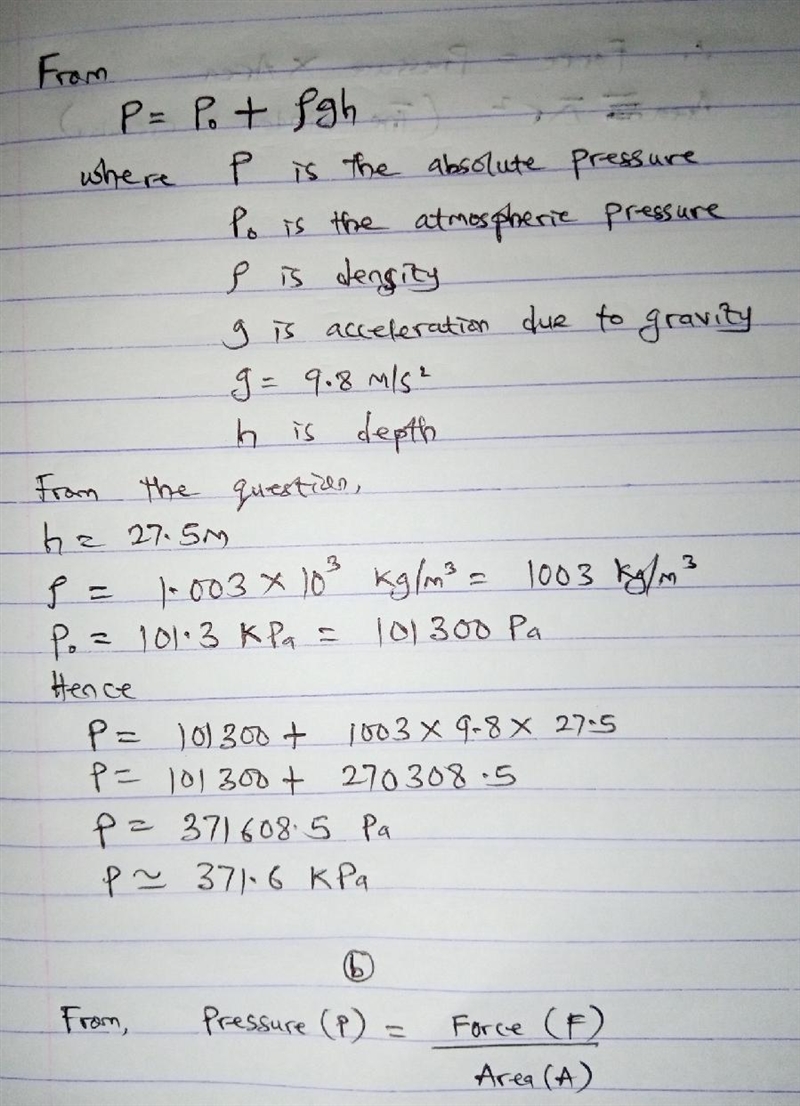 From
P = P₀ + ρgh
where P is the absolute pressure
P₀ is the atmospheric pressure
ρ is density
g is acceleration due to gravity
g = 9.8 m/s²
h is depth
From the question,
h = 27.5m
ρ = 1.003 × 10³ kg/m³ = 1003 kg/m³
P₀ = 101.3 KPa = 101300 Pa
Hence
P = 101300 + 1003 × 9.8 × 27.5
P = 101300 + 270308.5
P = 371608.5 Pa
P ≃ 371.6 KPa
(b)
From, Pressure (P) = Force (F)
Area (A)